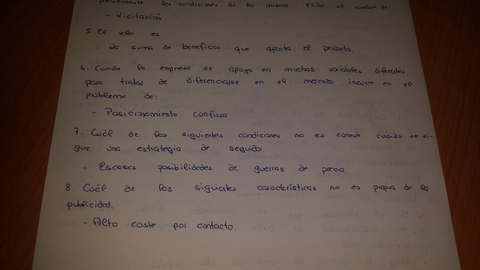 las condiciones de la misma recibe el nombre de
- Licitación
5. El valor es
- La suma de beneficios que aporta el producto.
6. Cuando la empresa se apoya en muchas variables diferentes
para tratar de diferenciarse en el mercado incurre en el
problema de:
- Posicionamiento confuso
7. Cuál de las siguientes condiciones no es común cuando se si-
gue una estrategia de seguidor.
- Escasas posibilidades de guerras de precio.
8. Cuál de las siguientes características no es propia de la
publicidad.
- Alto coste por contacto.